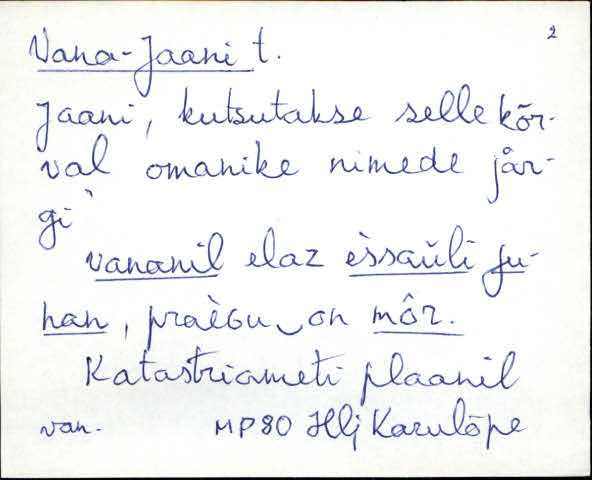 2
Vana-Jaani t.
Jaani, kutsutakse selle kõr-
val omanike nimede jär-
gi
vananil elaz èssaŭli Ju-
han, praèɢu‿on môr.
Katastriameti plaanil
van. MP80 Hlj Karulõpe